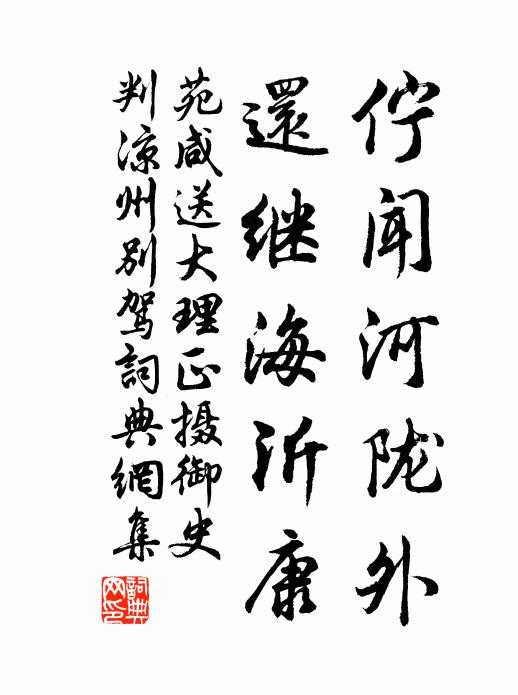 佇闻河陇外
還继海沂康
苑咸送大理正摄御史
判凉州别驾詞典網集
詞典網印